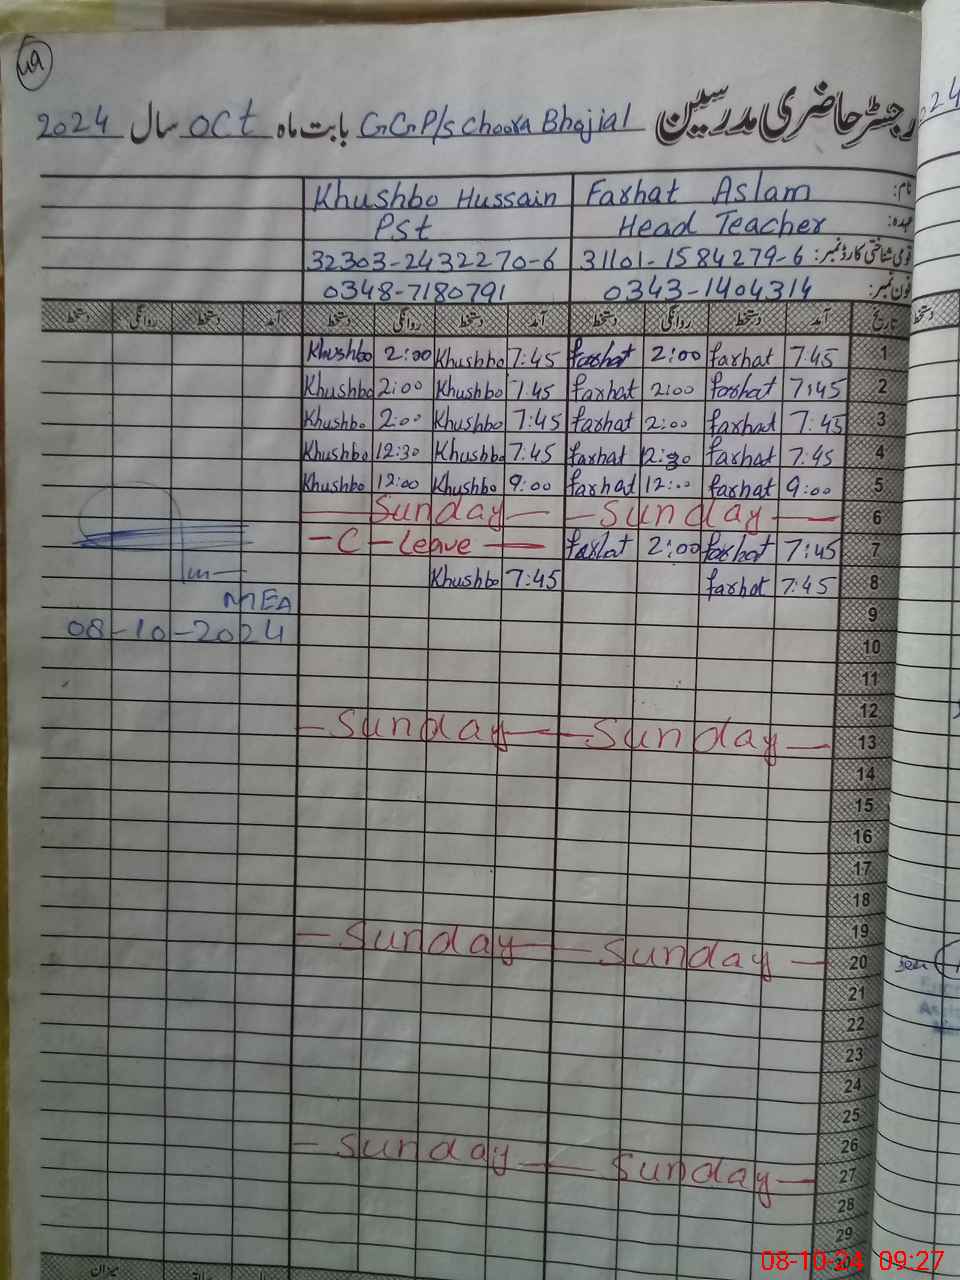 49
رجسٹر حاضری مدرسین GGP/s Choora Bhojial بابت ماہ Oct سال 2024
نام: Farhat Aslam Khushbo Hussain
عہدہ: Head Teacher Pst
قومی شناختی کارڈ نمبر: 31101-1584279-6 32303-2432270-6
فون نمبر: 0343-1404314 0348-7180791
تاریخ آمد دستخط روانگی دستخط آمد دستخط روانگی دستخط آمد دستخط روانگی دستخط
1 7:45 farhat 2:00 farhat 7:45 Khushbo 2:00 Khushbo
2 7:45 farhat 2:00 farhat 7:45 Khushbo 2:00 Khushbo
3 7:45 farhat 2:00 farhat 7:45 Khushbo 2:00 Khushbo
4 7:45 farhat 12:30 farhat 7:45 Khushbo 12:30 Khushbo
5 9:00 farhat 12:00 farhat 9:00 Khushbo 12:00 Khushbo
6 Sunday Sunday
7 7:45 farhat 2:00 farhat C-Leave
8 7:45 farhat 7:45 Khushbo
MEA
9
08-10-2024
10
11
12
13 Sunday Sunday
14
15
16
17
18
19
20 Sunday Sunday
21
22
23
24
25
26
27 Sunday Sunday
28
29
30
میزان
24
دستخط
08-10-24 09:27